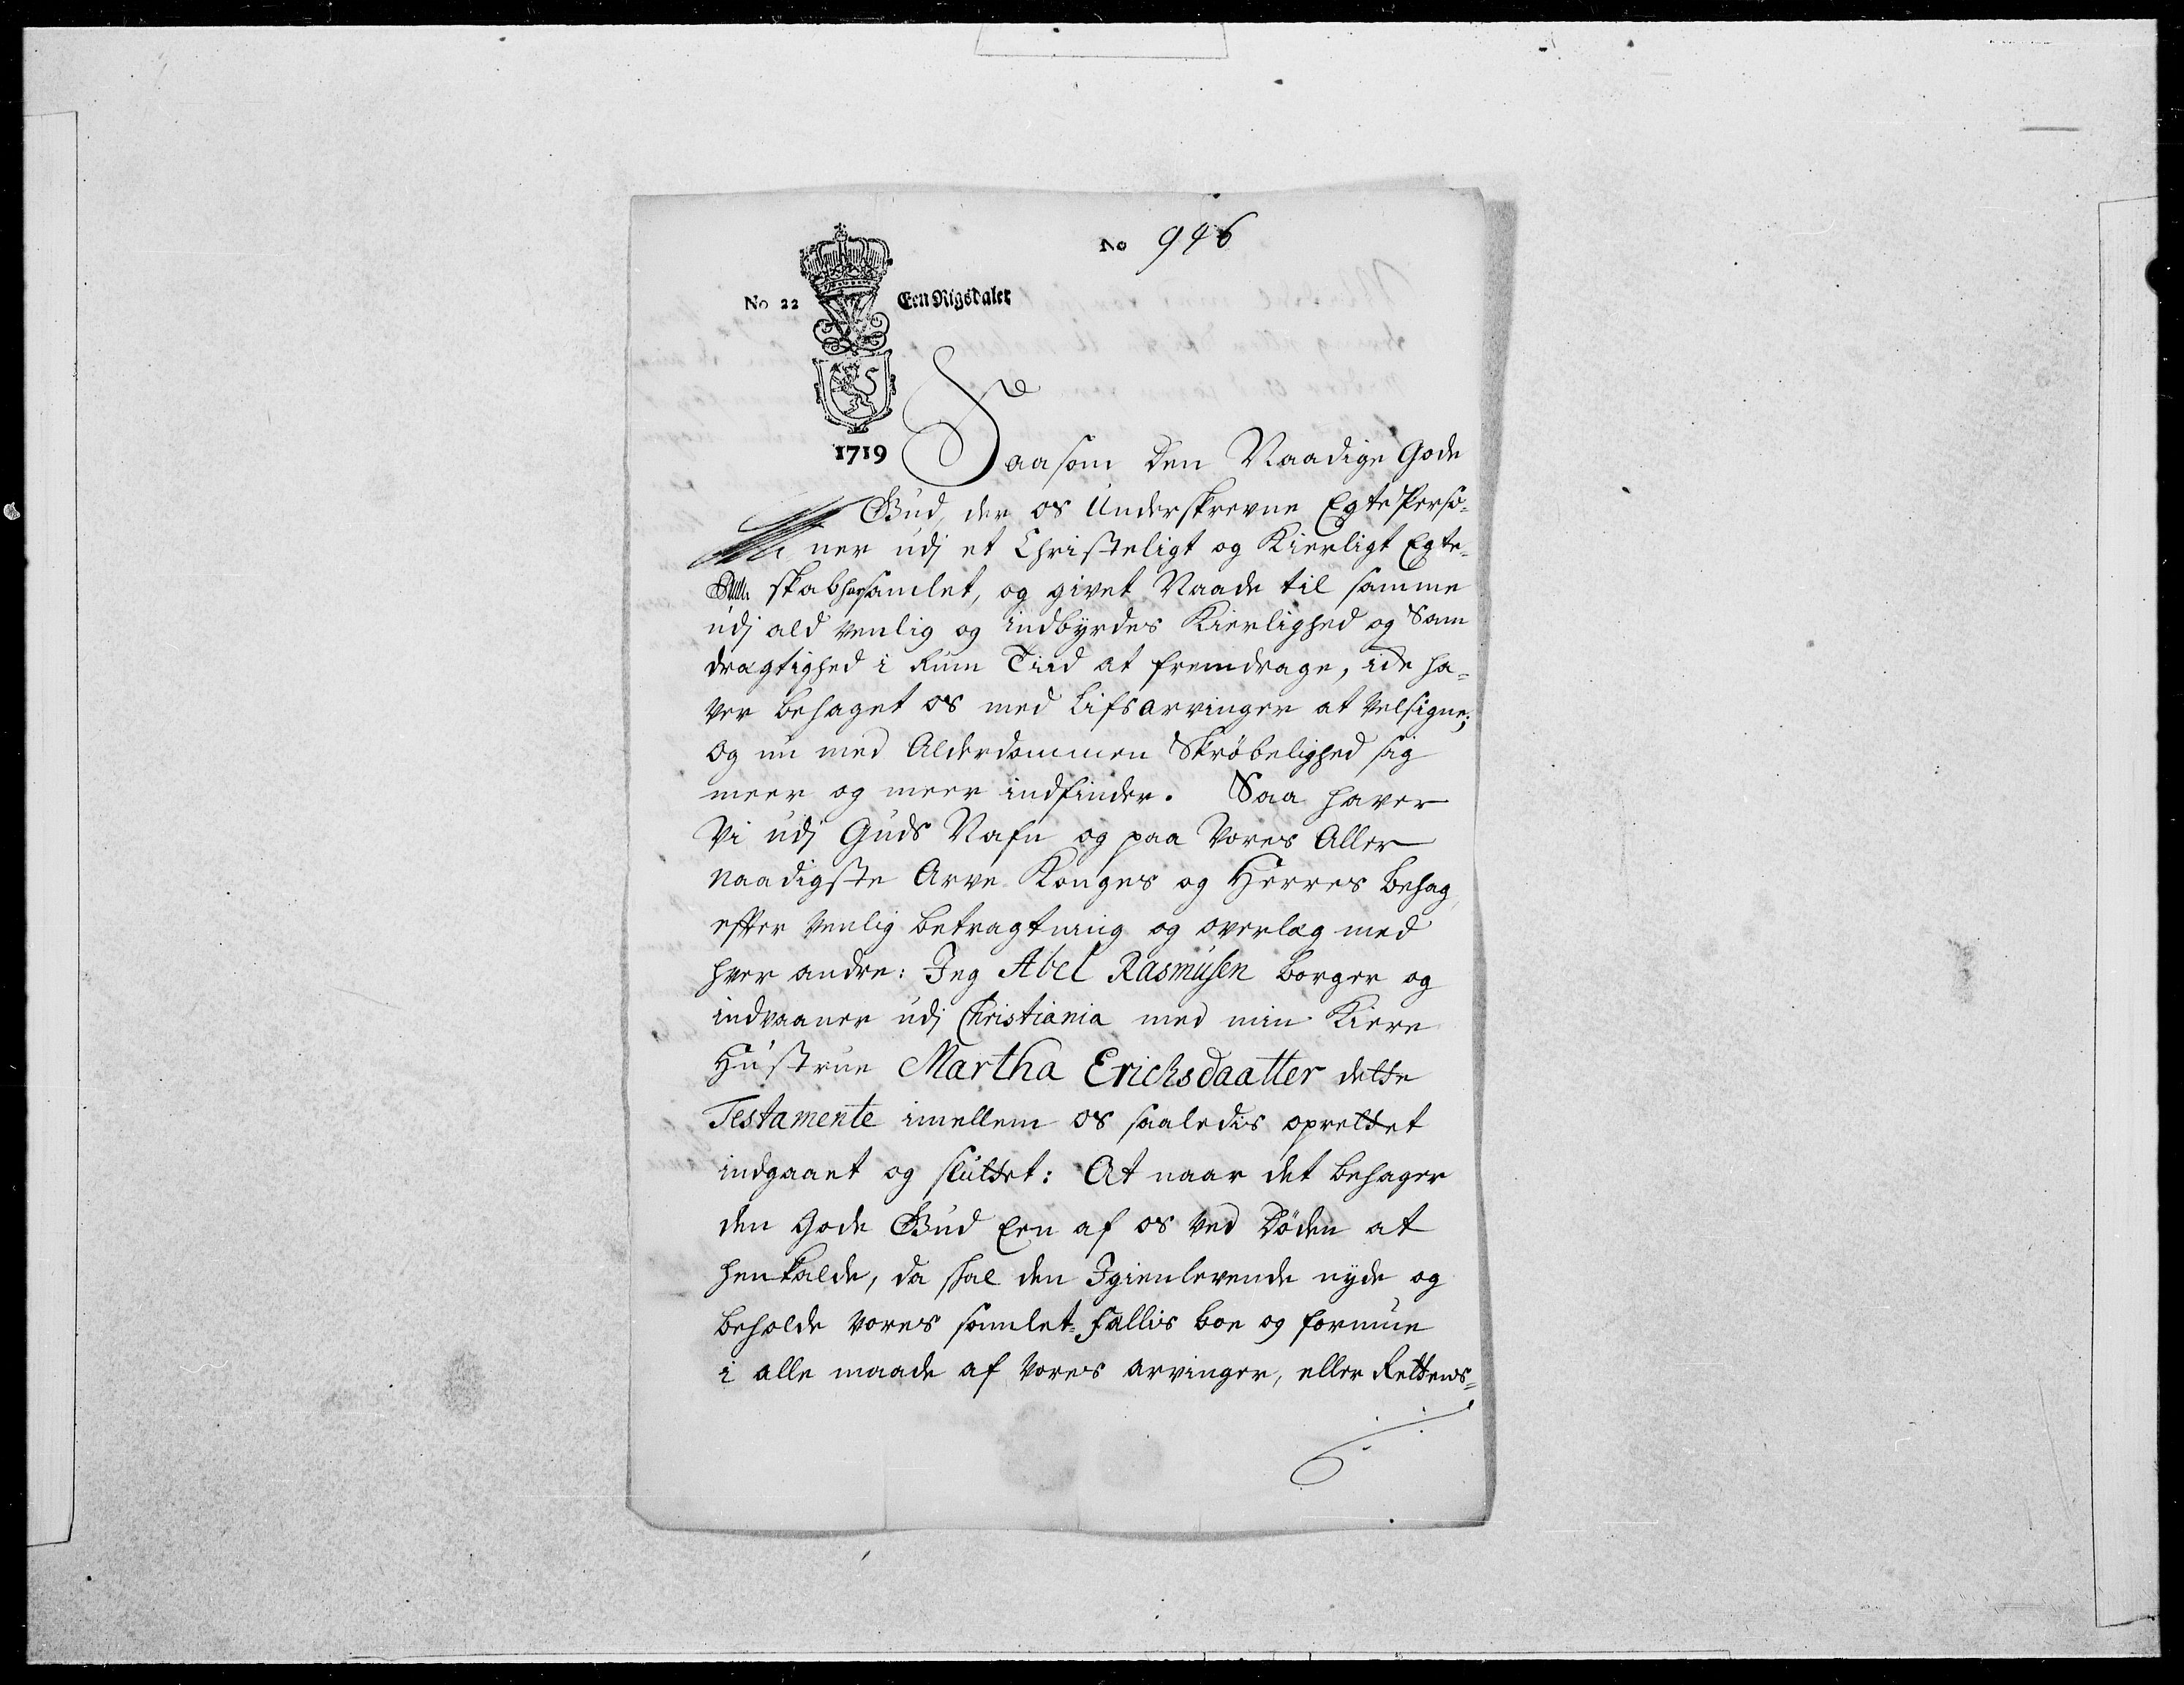 No 946
No 22 Een Rigsdaler
1719
Saasom den Naadige Gode
Gud, der os Underskrevne Egte Perso-
ner udj et Christeligt og Kierligt Egte-
skab har samlet, og givet Naade til samme
udj ald venlig og indbyrdes Kierlighed og Sam
drægtighed i Rum Tiid at fremdrage, icke ha-
ver behaget os med Lifsarvinger at velsigne;
og nu med Alderdommen Skrøbelighed sig
meer og meer indfinder. Saa haver
Vi udj Guds Nafn og paa Vores Aller
naadigste Arve Konges og Herres behag,
efter venlig betragtning og overlæg med
hver andre: Jeg Abel Rasmusen borger og
indvaaner udj Christiania med min Kiere
Hustrue Martha Erichsdaatter dette
Testamente imellem os saaledis oprettet
indgaaet og sluttet: At naar det behager
den Gode Gud Een af os ved Døden at
henkalde, da skal den Igienlevende nyde og
beholde vores samlet-fællis boe og formue
i alle maade af Vores arvinger, eller Rettens-